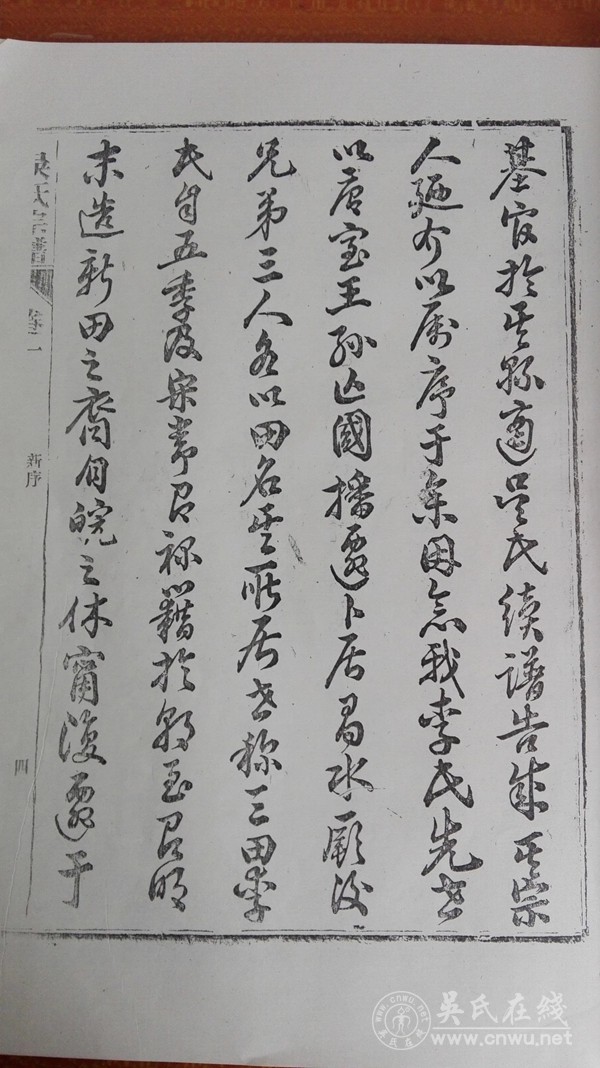 基官於其縣適吳氏續譜告成其宗
人迺介以屬序于余因念我李氏先世
以唐室王孫亡國播遷卜居昌水厥後
兄弟三人各以田名其所居世稱三田李
氏自五季及宋籍於至明
末造新田之裔自皖之休甯復遷于
吳氏宗譜 卷一 新序 四
吳氏在綫
www.cnwu.net